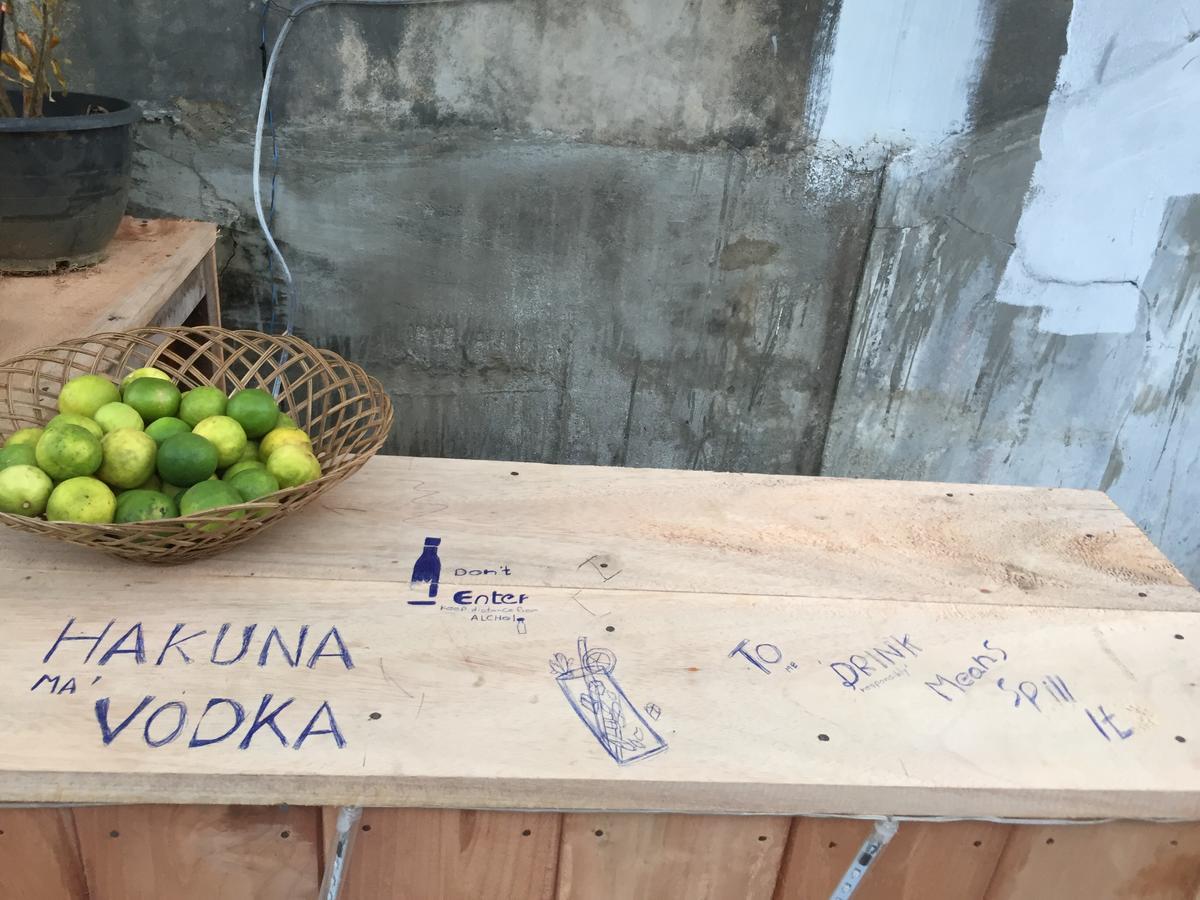 HAKUNA
MA'
VODKA
Don't
Enter
Keep distance from
ALCHol
TO ME
DRINK
responsably'
Means
Spill
It